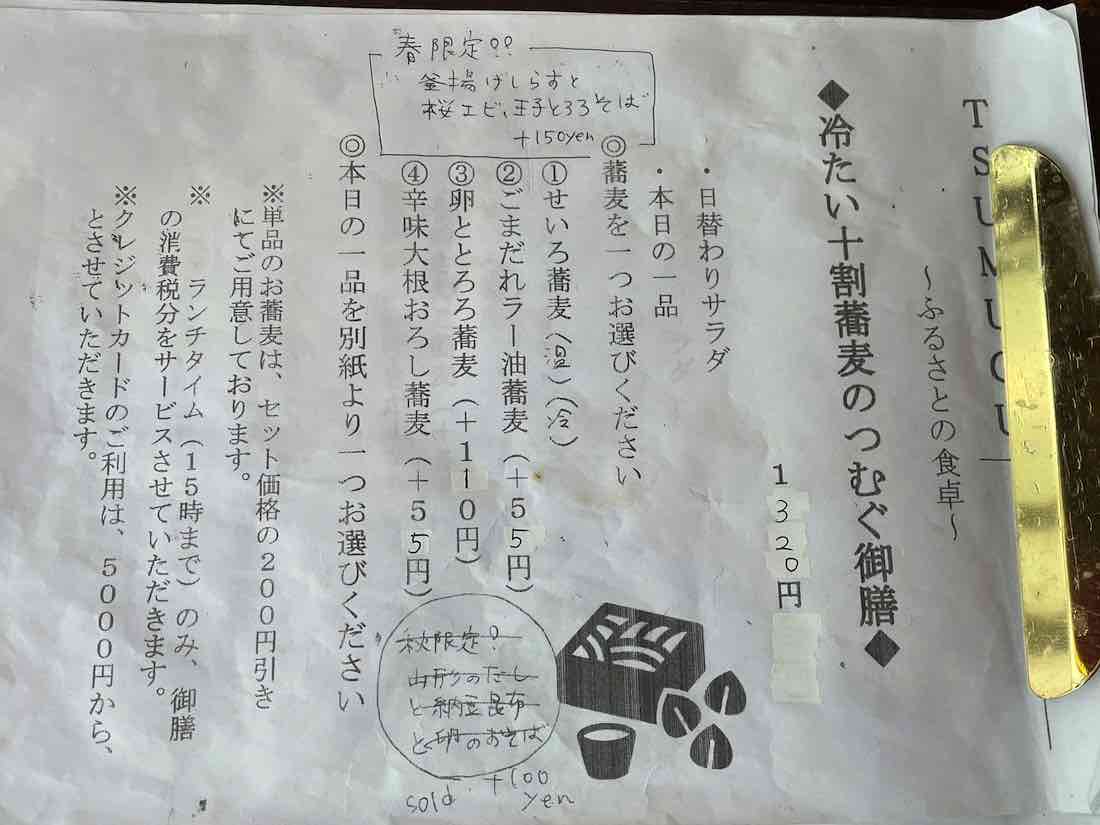 TSUMUGU
～ふるさとの食卓～
◆冷たい十割蕎麦のつむぐ御膳◆
1320円
・日替わりサラダ
・本日の一品
◎蕎麦を一つお選びください
①せいろ蕎麦(温)(冷)
②ごまだれラー油蕎麦(+55円)
③卵ととろろ蕎麦(+110円)
④辛味大根おろし蕎麦(+55円)
春限定!!
釜揚げしらすと
桜エビ、玉子とろろそば
+150yen
秋限定!
山形のだし
と納豆昆布
と卵のおそば
+100
yen
sold
◎本日の一品を別紙より一つお選びください
※単品のお蕎麦は、セット価格の200円引き
にてご用意しております。
※ ランチタイム(15時まで)のみ、御膳
の消費税分をサービスさせていただきます。
※クレジットカードのご利用は、5000円から、
とさせていただきます。